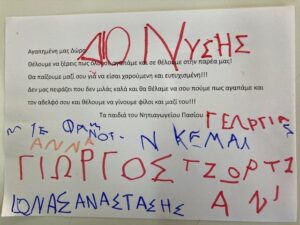 ΔΙΟΝΥΣΗΣ
Αγαπημένη μας Δώρα
Θέλουμε να ξέρεις πως όλοι σε αγαπάμε και σε θέλουμε στην παρέα μας!
Θα παίζουμε μαζί σου για να είσαι χαρούμενη και ευτυχισμένη!!!
Δεν μας πειράζει που δεν μιλάς καλά και θα θέλαμε να σου πούμε πως αγαπάμε και
τον αδελφό σου και θέλουμε να γίνουμε φίλοι και μαζί του!!!
Τα παιδιά του Νηπιαγωγείου Πασίου
ΓΕΩΡΓΙΑ
ΑΝΝΑ
ΚΕΜΑΛ
ΓΙΩΡΓΟΣ ΤΖΩΡΤΖ
ΙΩΝΑΣ ΑΝΑΣΤΑΣΗΣ